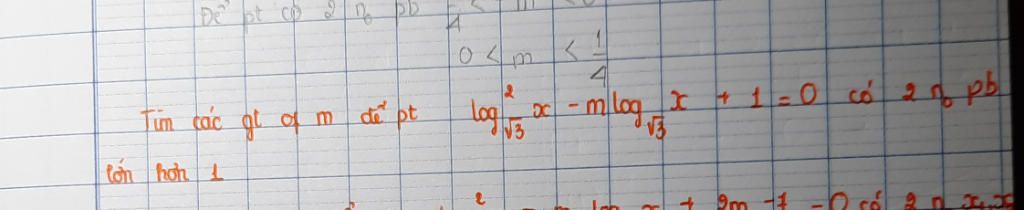 Để pt có 2 n₀ pb
0 < m < 1/4
Tìm các gt of m để pt log²_√3 x - m log_√3 x + 1 = 0 có 2 n₀ pb
lớn hơn 1
+ 2m - 1 = 0 có 2 n